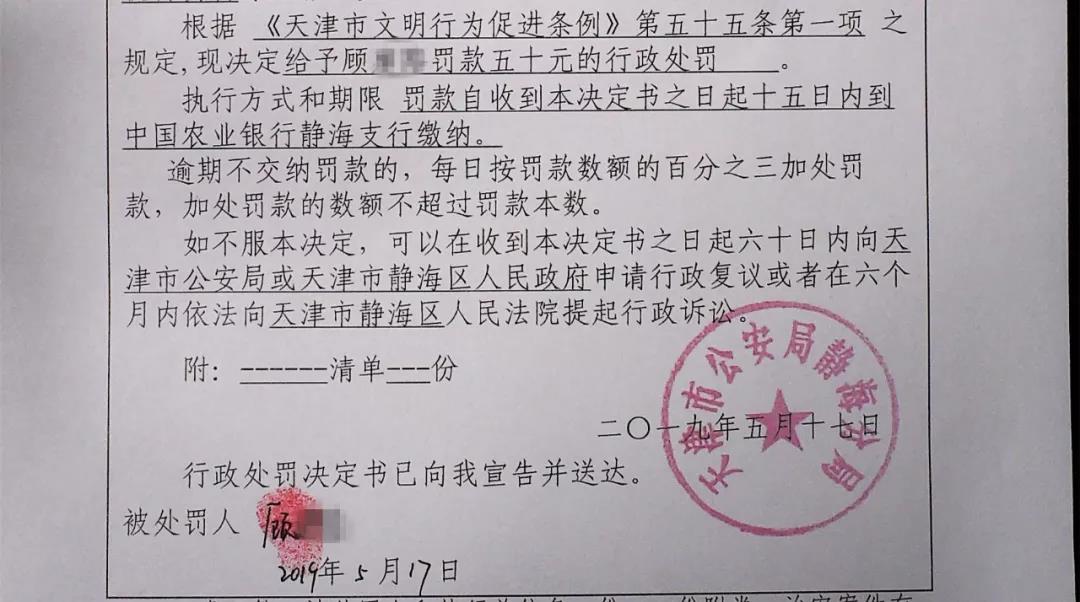 根据 《天津市文明行为促进条例》第五十五条第一项 之
规定,现决定给予顾 罚款五十元的行政处罚 。
执行方式和期限 罚款自收到本决定书之日起十五日内到
中国农业银行静海支行缴纳。
逾期不交纳罚款的，每日按罚款数额的百分之三加处罚
款，加处罚款的数额不超过罚款本数。
如不服本决定，可以在收到本决定书之日起六十日内向天
津市公安局或天津市静海区人民政府申请行政复议或者在六个
月内依法向天津市静海区人民法院提起行政诉讼。
附：------清单---份
天津市公安局静海分局
二〇一九年五月十七日
行政处罚决定书已向我宣告并送达。
被处罚人 顾
2019年5月17日